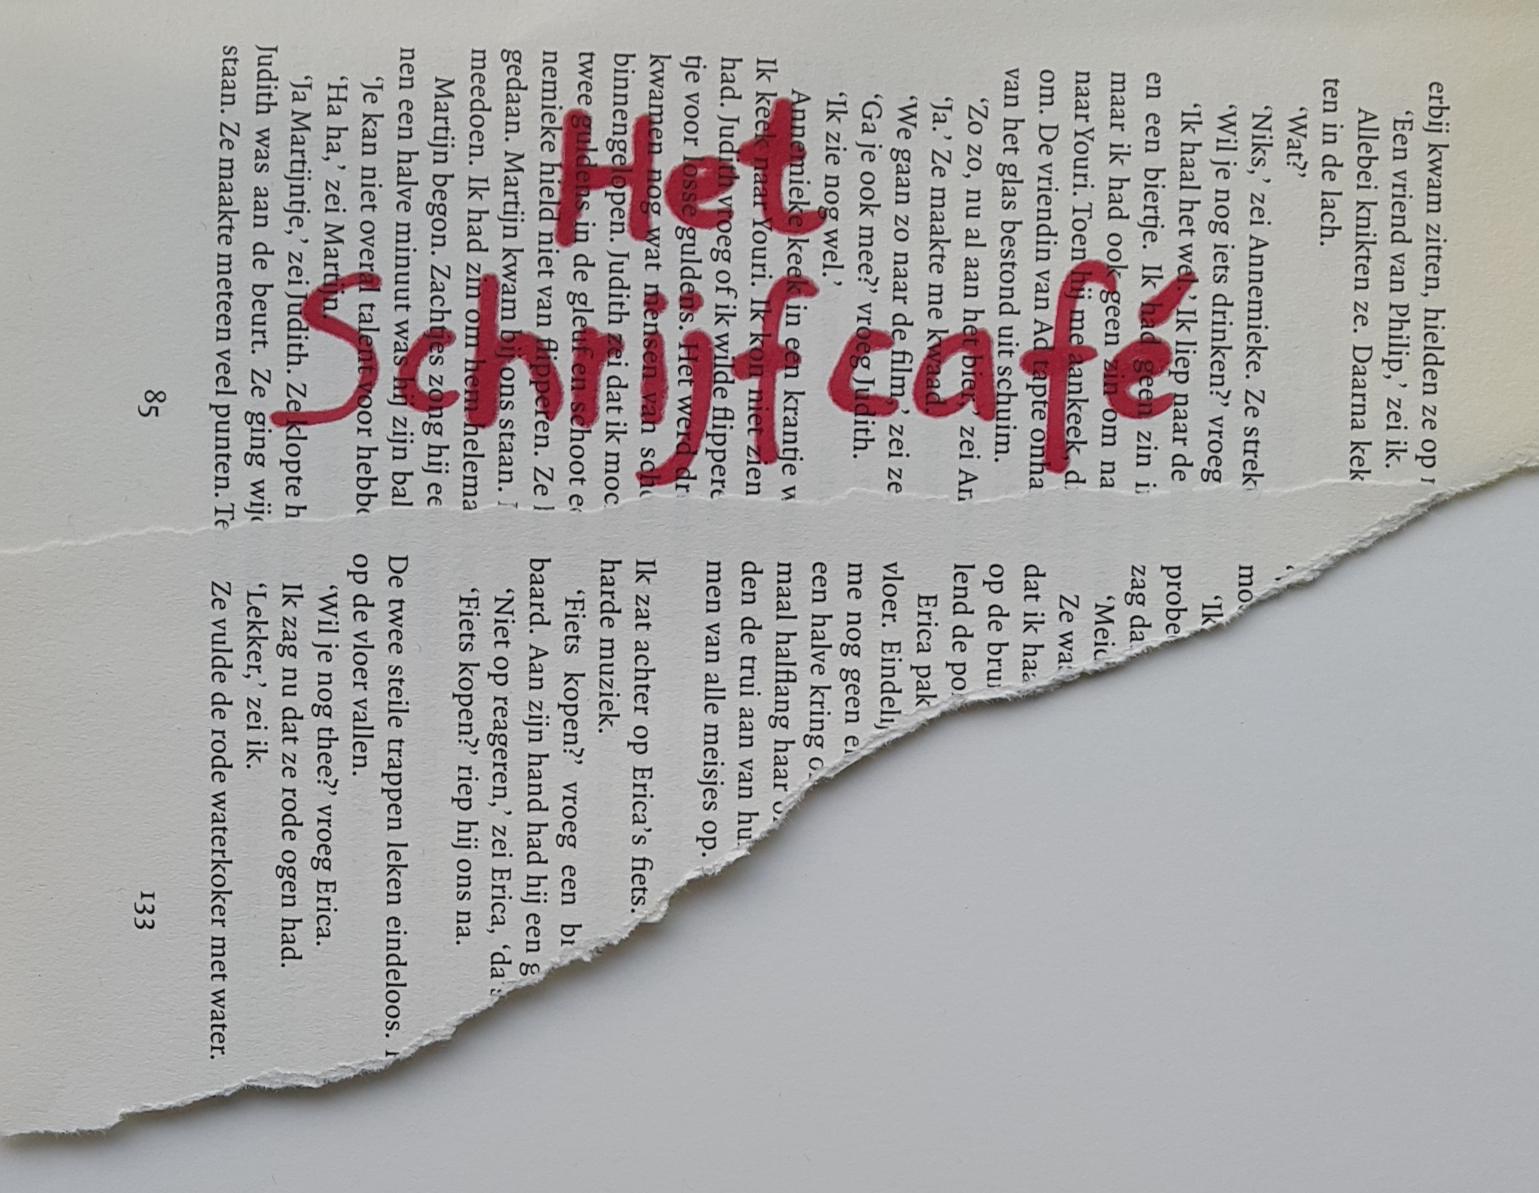 Het
Schrijfcafé
erbij kwam zitten, hielden ze op
‘Een vriend van Philip,’ zei ik.
Allebei knikten ze. Daarna kek
ten in de lach.
‘Wat?’
‘Niks,’ zei Annemieke. Ze strek
‘Wil je nog iets drinken?’ vroeg
‘Ik haal het wel.’ Ik liep naar de
en een biertje. Ik had geen zin i
maar ik had ook geen zin om na
naar Youri. Toen hij me aankeek, d
om. De vriendin van Ad tapte onha
van het glas bestond uit schuim.
‘Zo zo, nu al aan het bier,’ zei An
‘Ja.’ Ze maakte me kwaad.
‘We gaan zo naar de film,’ zei ze
‘Ga je ook mee?’ vroeg Judith.
‘Ik zie nog wel.’
Annemieke keek in een krantje w
Ik keek naar Youri. Ik kon niet zien
had. Judith vroeg of ik wilde flippere
tje voor losse guldens. Het werd dr
kwamen nog wat mensen van scho
binnengelopen. Judith zei dat ik moc
twee guldens in de gleufen schoot e
nemieke hield niet van flipperen. Ze
gedaan. Martijn kwam bij ons staan.
meedoen. Ik had zin om hem helema
Martijn begon. Zachtjes zong hij ee
nen een halve minuut was hij zijn bal
‘Je kan niet overal talent voor hebbe
‘Ha ha,’ zei Martijn.
‘Ja Martijntje,’ zei Judith. Ze klopte h
Judith was aan de beurt. Ze ging wijd
staan. Ze maakte meteen veel punten. Te
85
mo
‘Ik
probe
zag da
‘Meid
Ze wa
dat ik haa
op de brui
lend de po
Erica pak
vloer. Eindelij
me nog geen
een halve kring
maal halflang haar
den de trui aan van hu
men van alle meisjes op.
Ik zat achter op Erica’s fiets.
harde muziek.
‘Fiets kopen?’ vroeg een br
baard. Aan zijn hand had hij een g
‘Niet op reageren,’ zei Erica, ‘da
‘Fiets kopen?’ riep hij ons na.
De twee steile trappen leken eindeloos.
op de vloer vallen.
‘Wil je nog thee?’ vroeg Erica.
Ik zag nu dat ze rode ogen had.
‘Lekker,’ zei ik.
Ze vulde de rode waterkoker met water.
133